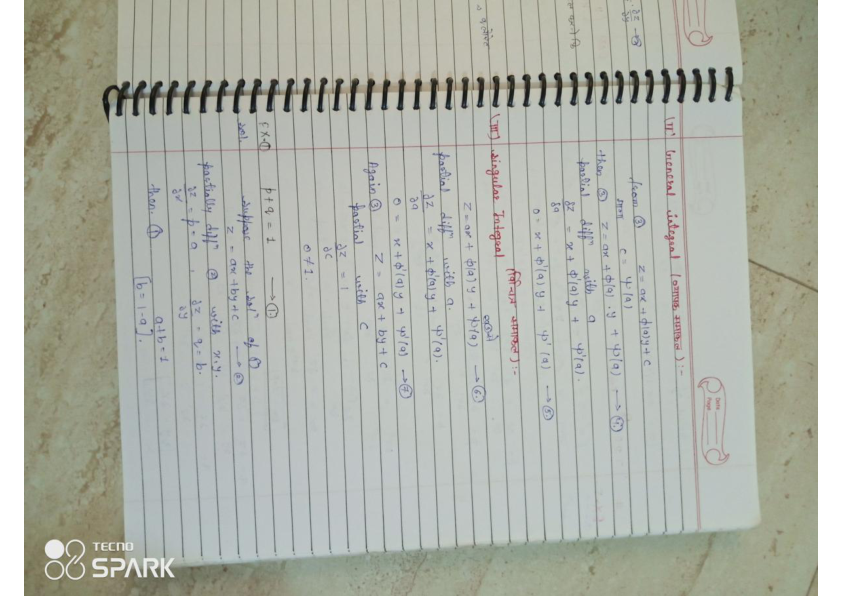 (II) General integral (व्यापक समाकल) :-
from ③ z = ax + ϕ(a)y + c
माना c = ψ(a)
then ③ z = ax + ϕ(a).y + ψ(a) → ④
partial diffⁿ with a
∂z/∂a = x + ϕ'(a)y + ψ'(a).
0 = x + ϕ'(a)y + ψ'(a) → ⑤
(III) Singular Integral (विचित्र समाकल) :-
z = ax + ϕ(a)y + ψ(a) → ⑥
partial diffⁿ with a.
∂z/∂a = x + ϕ'(a)y + ψ'(a).
0 = x + ϕ'(a)y + ψ'(a) → ⑦
Again ③ z = ax + by + c
partial with c
∂z/∂c = 1
0 ≠ 1.
Ex-① p + q = 1 → ①
Sol. Suppose the solⁿ of ①
z = ax + by + c → ②
partially diffⁿ ② with x, y.
∂z/∂x = p = a , ∂z/∂y = q = b.
then ① a + b = 1
[b = 1 - a].
Date
Page
TECNO
SPARK